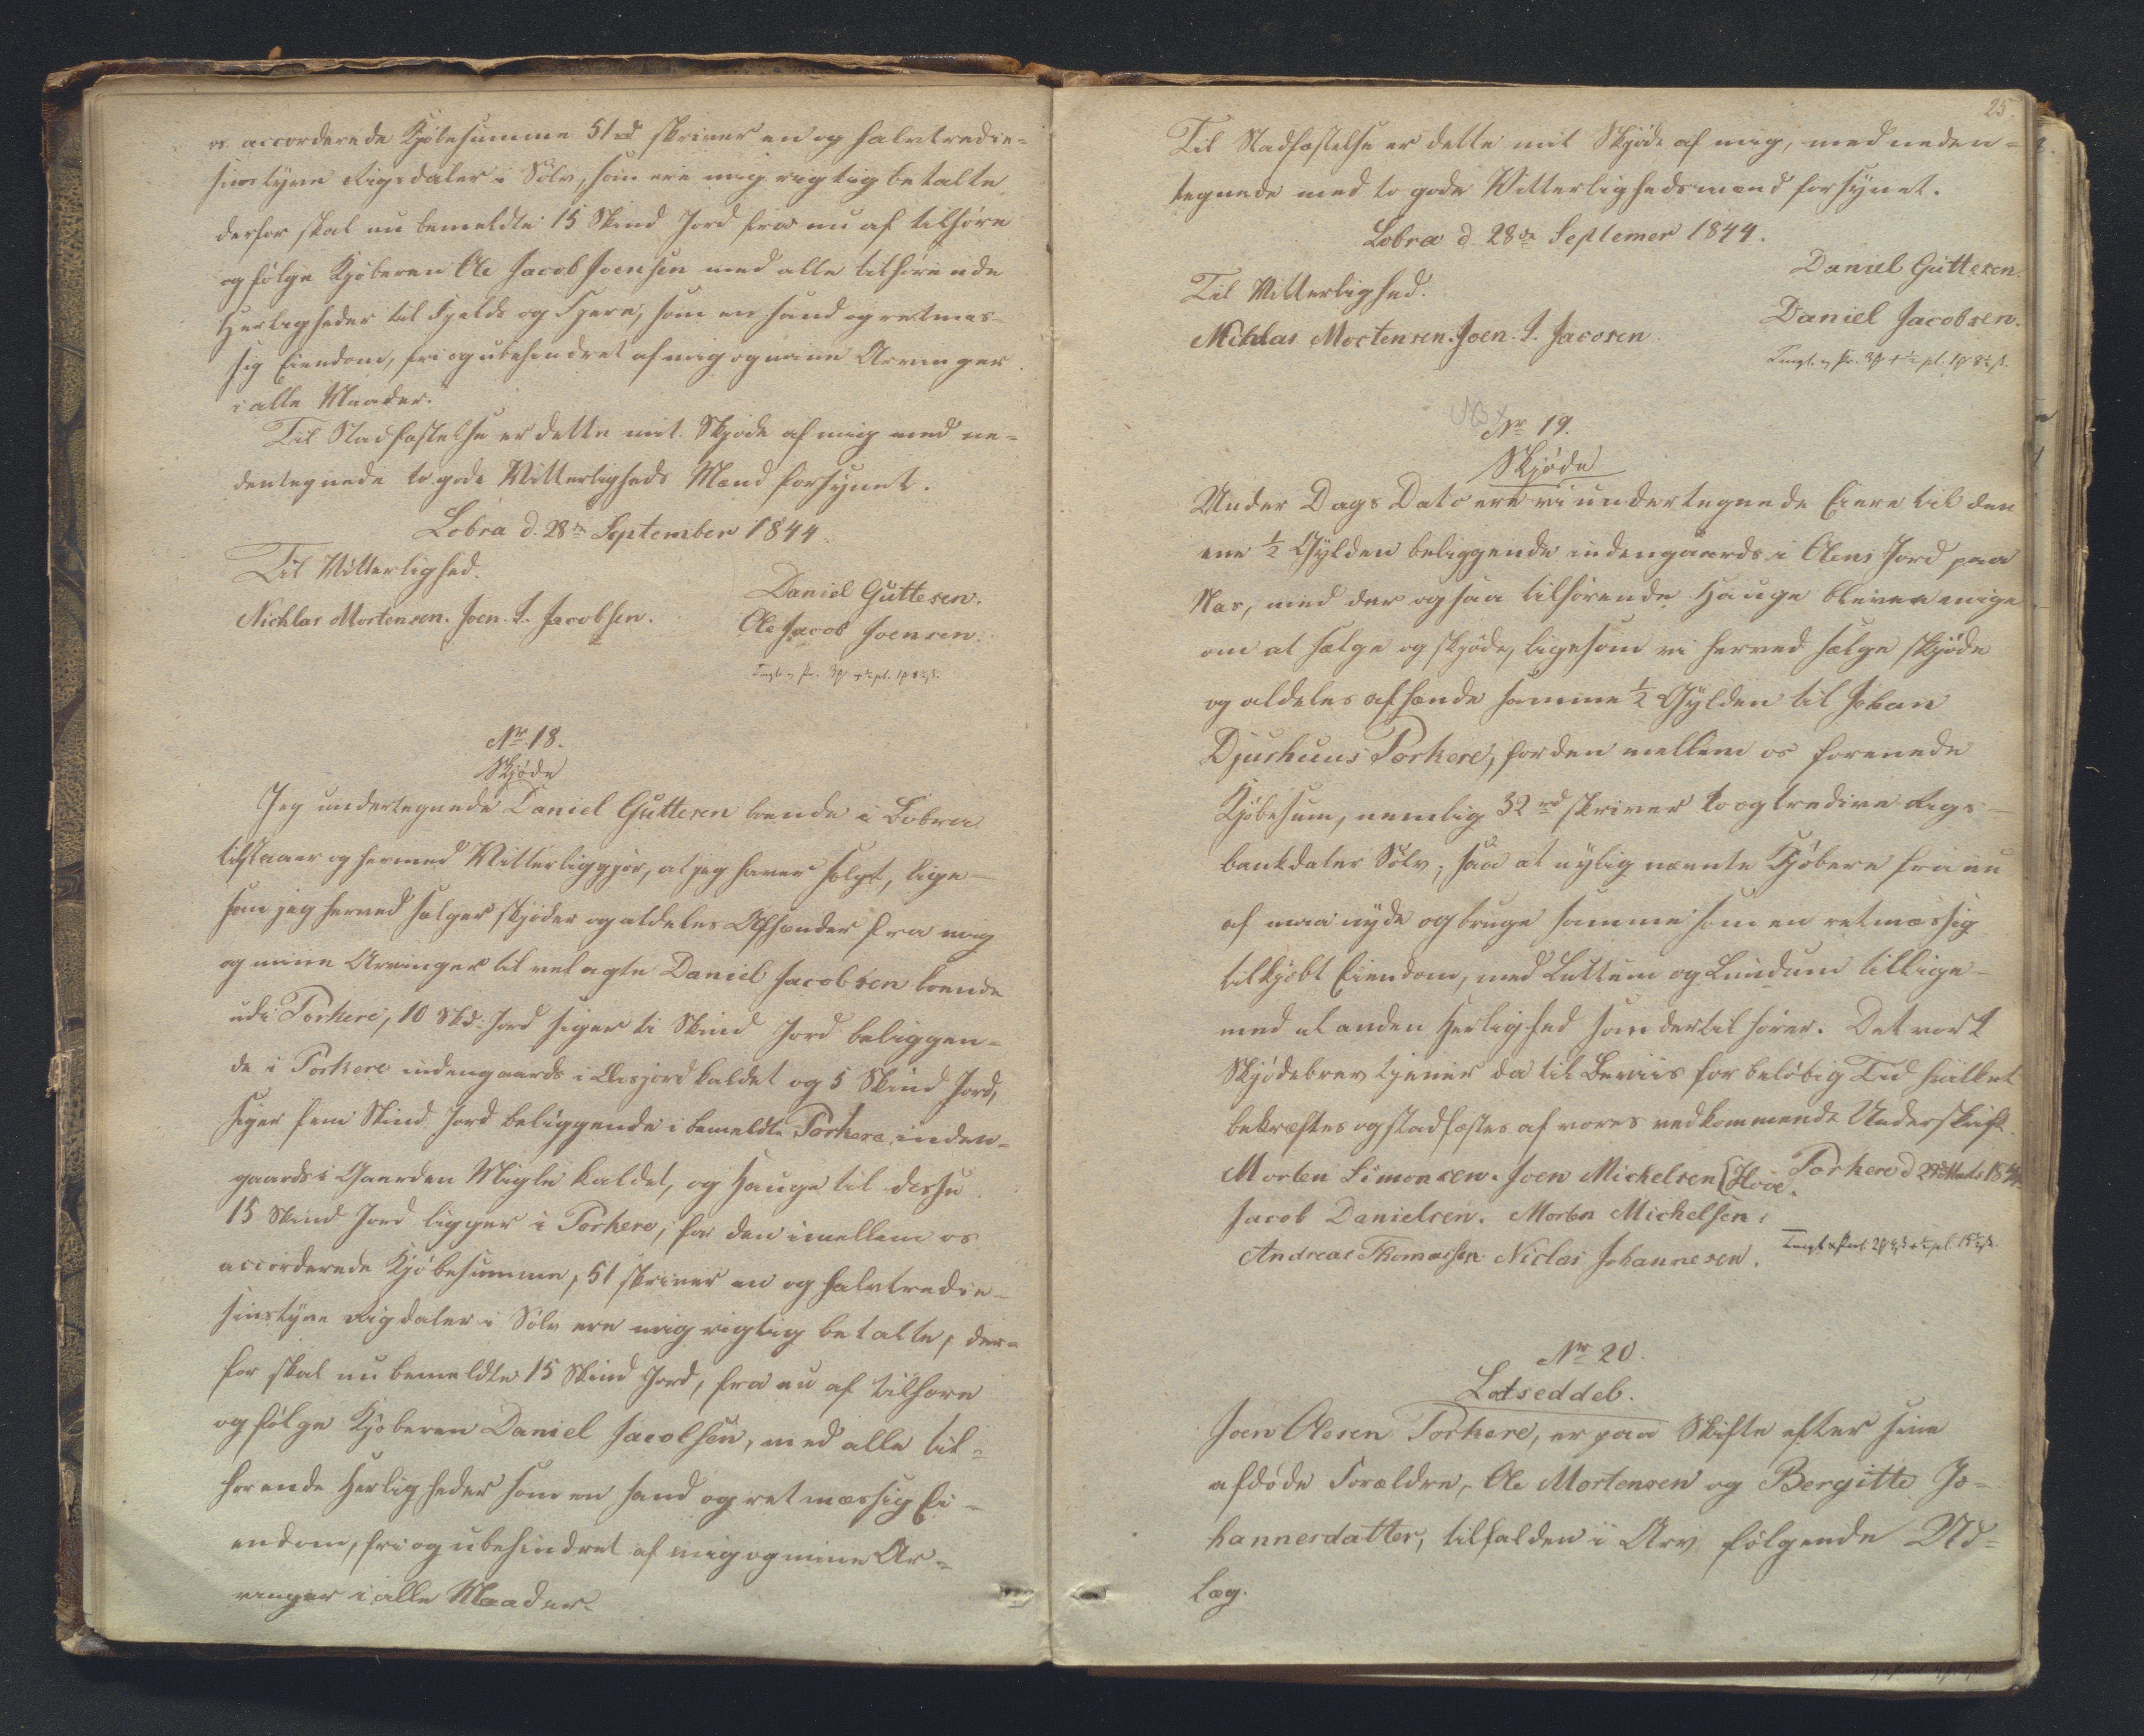 os accorderede Kjøbesumme 51 rd skriver en og halvtredie-
sins tyve Rigsdaler i Sølv, som ere mig rigtig betalte
derfor skal nu bemeldte 15 Skind Jord fra nu af tilhøre
og følge Kjøberen Ole Jacob Joensen med alle tilhørende
Herligheder til Fjelds og Fjære, som en sand og retmæs-
sig Eiendom, fri og ubehindret af mig og mine Arvinger
i alle Maader.
Til Stadfæstelse er dette mit Skjøde af mig med ne-
dentegnede to gode Vitterligheds Mænd forsynet.
Lobra d. 28de September 1844.
Til Vitterlighed.
Nichlas Mortensen. Joen. J. Jacobsen.
Daniel Guttesen.
Ole Jacob Joensen.
No 18.
Skjøde
Jeg undertegnede Daniel Guttesen boende i Lobra
tilstaaer og hermed Vitterliggjør, at jeg haver solgt, lige-
som jeg herved sælger skjøder og aldeles Afhænder fra mig
og mine Arvinger til velagte Daniel Jacobsen boende
udi Porkere, 10 Skd: Jord siger ti Skind Jord beliggen-
de i Porkere indengaards i Olisjord kaldet og 5 Skind Jord,
siger fem Skind Jord beliggende i bemeldte Porkere inden-
gaards i Gaarden Migli kaldet, og Hauge til disse
15 Skind Jord ligger i Porkere, for den imellem os
accorderede Kjøbesumme, 51 skriver en og halvtredie-
sinstyve Rigdaler i Sølv ere mig rigtig betalte, der-
for skal nu bemeldte 15 Skind Jord, fra nu af tilhøre
og følge Kjøberen Daniel Jacobsen, med alle til-
hørende Herligheder som en sand og retmæssig Ei-
endom, fri og ubehindret af mig og mine Ar-
vinger i alle Maader.
25.
Til Stadfæstelse er dette mit Skjøde af mig, med neden-
tegnede med to gode Vitterlighedsmænd forsynet.
Lobra d. 28de Septemer 1844.
Daniel Guttesen.
Til Vitterlighed.
Daniel Jacobsen.
Nichlas Mortensen. Joen. J. Jacosen
No 19.
Skjøde
Under Dags Dato ere vi undertegnede Eiere til den
ene ½ Gylden beliggende indengaards i Olens Jord paa
Næs, med der ogsaa tilhørende Hauge bleven enige
om at sælge og skjøde, ligesom vi herved sælge skjøde
og aldeles afhænde samme ½ Gylden til Johan
Djurhuus Porkere, for den mellem os forenede
Kjøbesum, nemlig 32 rd skriver to og tredive Rigs-
bankdaler Sølv; saa at nylig nævnte Kjøbere fra nu
af maa nyde og bruge samme som en retmæssig
tilkjøbt Eiendom, med Luttum og Lundum tillige-
med al anden Herlighed som dertil hører. Det vort
Skjødebrev tjener da til Beviis for beløbig Tid hvilket
bekræftes og stadfæstes af vores vedkommende Underskrift
Morten Simonsen. Joen Michelsen Hove. Porkere d
Jacob Danielsen. Morten Michelsen.
Andreas Thomassen. Niclas Johannesen.
No 20.
Lodseddel.
Joen Olesen Porkere, er paa Skifte efter sine
afdøde Forældre, Ole Mortensen og Bergitte Jo-
hannesdatter, tilfalden i Arv følgende Ud-
læg.